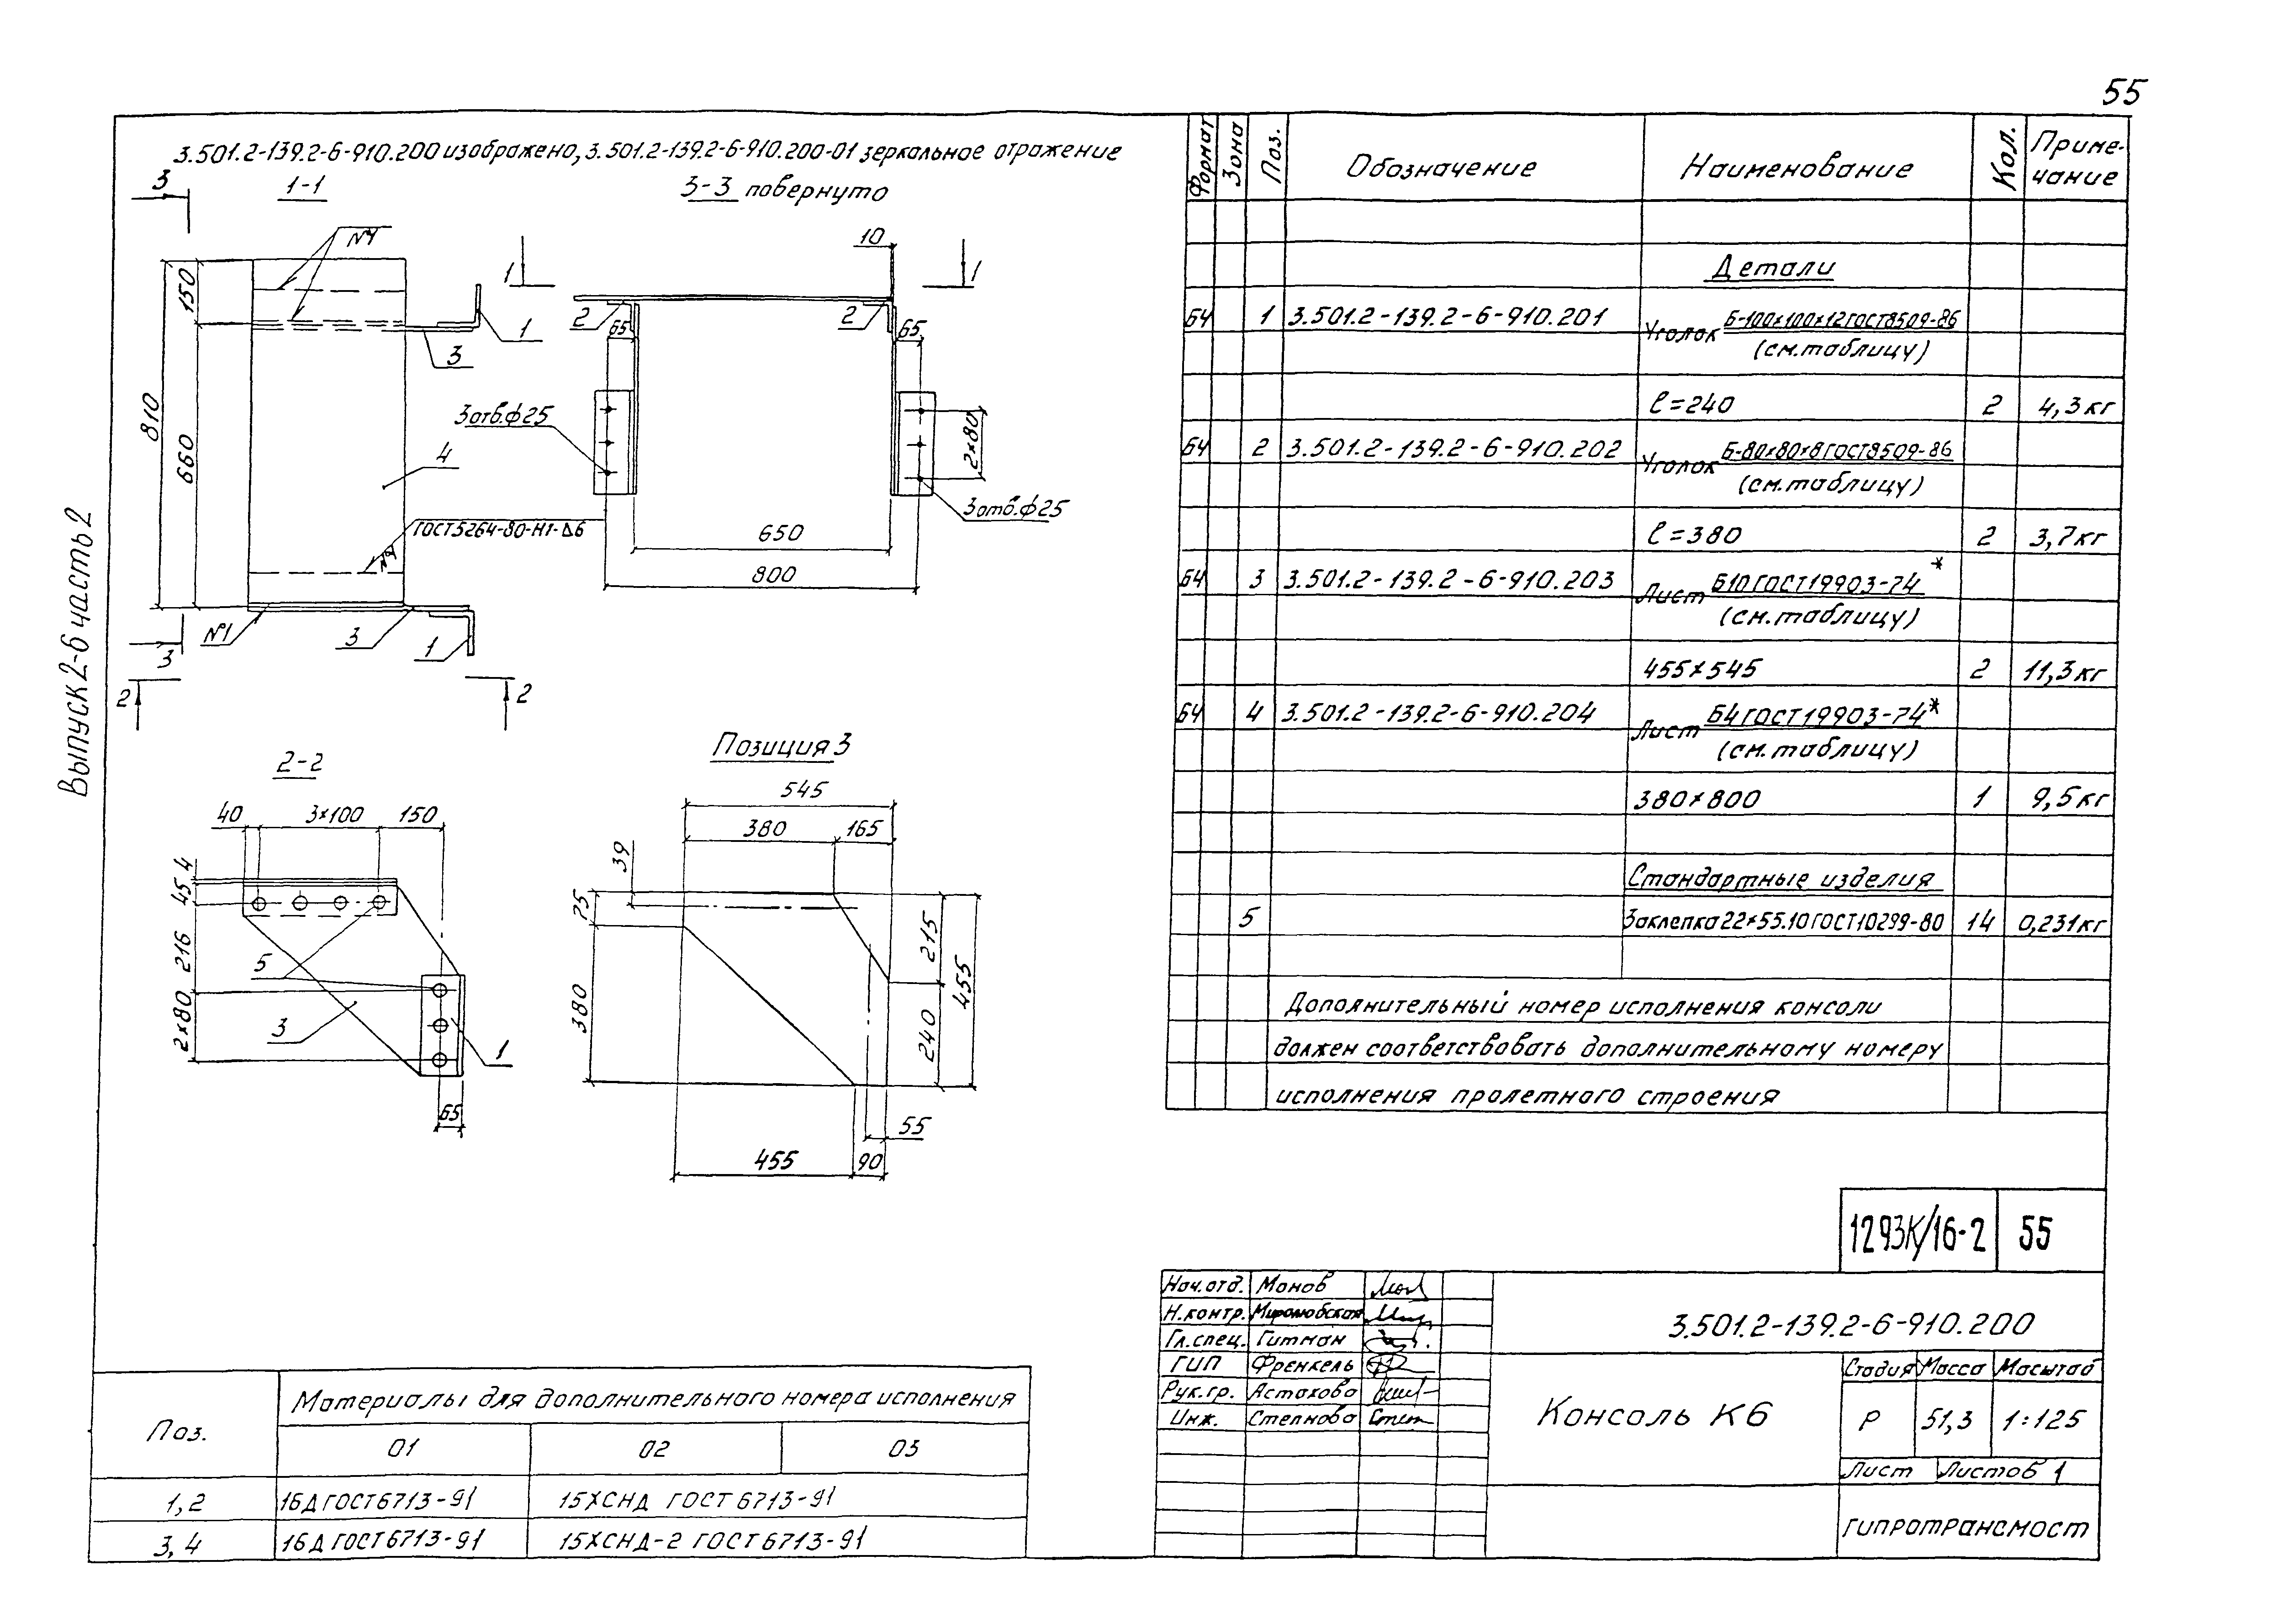 55
3.501.2-139.2-6-910.200 изображено, 3.501.2-139.2-6-910.200-01 зеркальное отражение
1-1
3-3 повернуто
3
3
№4
150
810
660
1
3
4
ГОСТ 5264-80-Н1-Δ6
№1
3
1
2
2
10
1
1
2
2
65
65
3 отв. ф 25
2×80
3 отв. ф 25
650
800
Выпуск 2-6 часть 2
2-2
40
3×100
150
4
45
216
2×80
5
3
1
65
Позиция 3
545
380
165
39
75
380
215
240
455
55
455
90
Формат
Зона
Поз.
Обозначение
Наименование
Кол.
Приме-
чание
Детали
Б4 1 3.501.2-139.2-6-910.201 Уголок Б-100×100×12 ГОСТ 8509-86
(см. таблицу)
ℓ=240 2 4,3 кг
Б4 2 3.501.2-139.2-6-910.202 Уголок Б-80×80×8 ГОСТ 8509-86
(см. таблицу)
ℓ=380 2 3,7 кг
Б4 3 3.501.2-139.2-6-910.203 Лист Б10 ГОСТ 19903-74*
(см. таблицу)
455×545 2 11,3 кг
Б4 4 3.501.2-139.2-6-910.204 Лист Б4 ГОСТ 19903-74*
(см. таблицу)
380×800 1 9,5 кг
Стандартные изделия
5 Заклепка 22×55.10 ГОСТ 10299-80 14 0,231 кг
Дополнительный номер исполнения консоли
должен соответствовать дополнительному номеру
исполнения пролетного строения
1293К/16-2 55
Нач.отд. Монов
Н.контр.
Гл.спец. Гитман
ГИП Френкель
Рук.гр. Астахова
Инж. Степнова
3.501.2-139.2-6-910.200
Консоль К6
Стадия Масса Масштаб
Р 51,3 1:125
Лист Листов 1
Гипротрансмост
Поз. Материалы для дополнительного номера исполнения
01 02 03
1,2 16Д ГОСТ 6713-91 15ХСНД ГОСТ 6713-91
3,4 16Д ГОСТ 6713-91 15ХСНД-2 ГОСТ 6713-91